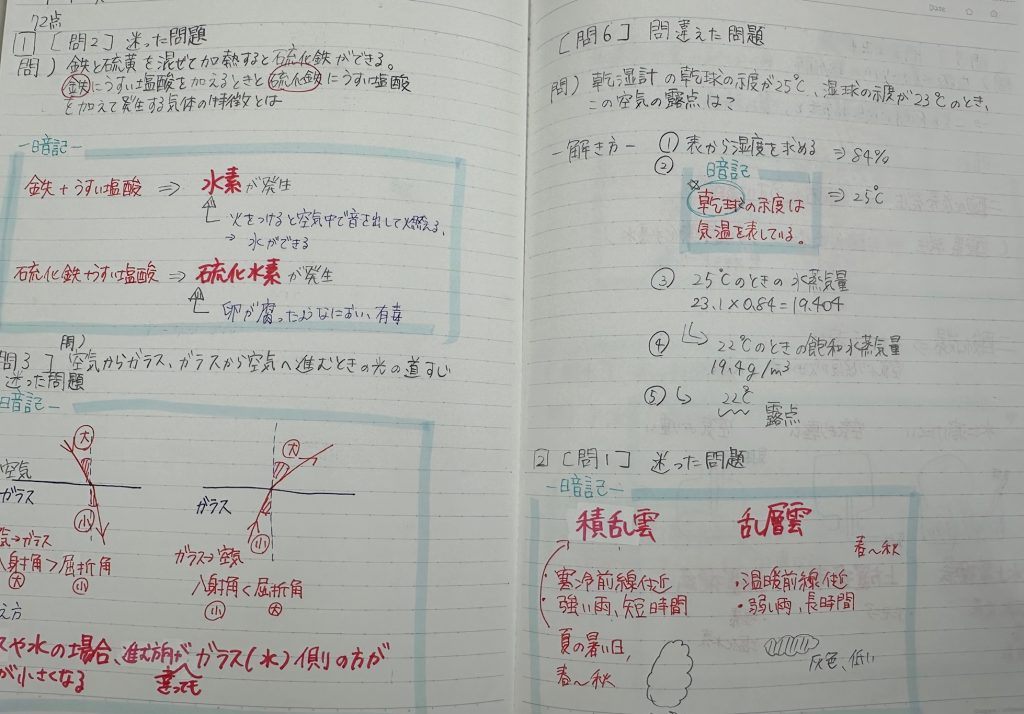 72点
1 [問2] 迷った問題
問) 鉄と硫黄を混ぜて加熱すると硫化鉄ができる。
鉄にうすい塩酸を加えるときと硫化鉄にうすい塩酸
を加えて発生する気体の特徴とは
-暗記-
鉄+うすい塩酸 ⇒ 水素が発生
火をつけると空気中で音を出して燃える。
→ 水ができる
硫化鉄+うすい塩酸 ⇒ 硫化水素が発生
卵が腐ったようなにおい、有毒
問)
問3] 空気からガラス、ガラスから空気へ進むときの光の道すじ
迷った問題
暗記-
大
空気
ガラス
小
気→ガラス
入射角>屈折角
大 小
大
ガラス
小
ガラス→空気
入射角<屈折角
小 大
え方
スや水の場合、進む方向が違っても ガラス(水)側の方が
が小さくなる
Date
[問6] 間違えた問題
問) 乾湿計の乾球の示度が25℃、湿球の示度が23℃のとき、
この空気の露点は?
-解き方- ① 表から湿度を求める ⇒84%
② 暗記
☆乾球の示度は ⇒25℃
気温を表している。
③ 25℃のときの水蒸気量
23.1×0.84=19.404
④ 22℃のときの飽和水蒸気量
19.4g/m³
⑤ 22℃ 露点
2 [問1] 迷った問題
-暗記-
積乱雲 乱層雲
春~秋
・寒冷前線付近 ・温暖前線付近
・強い雨、短時間 ・弱い雨、長時間
夏の暑い日、
春~秋
灰色、低い